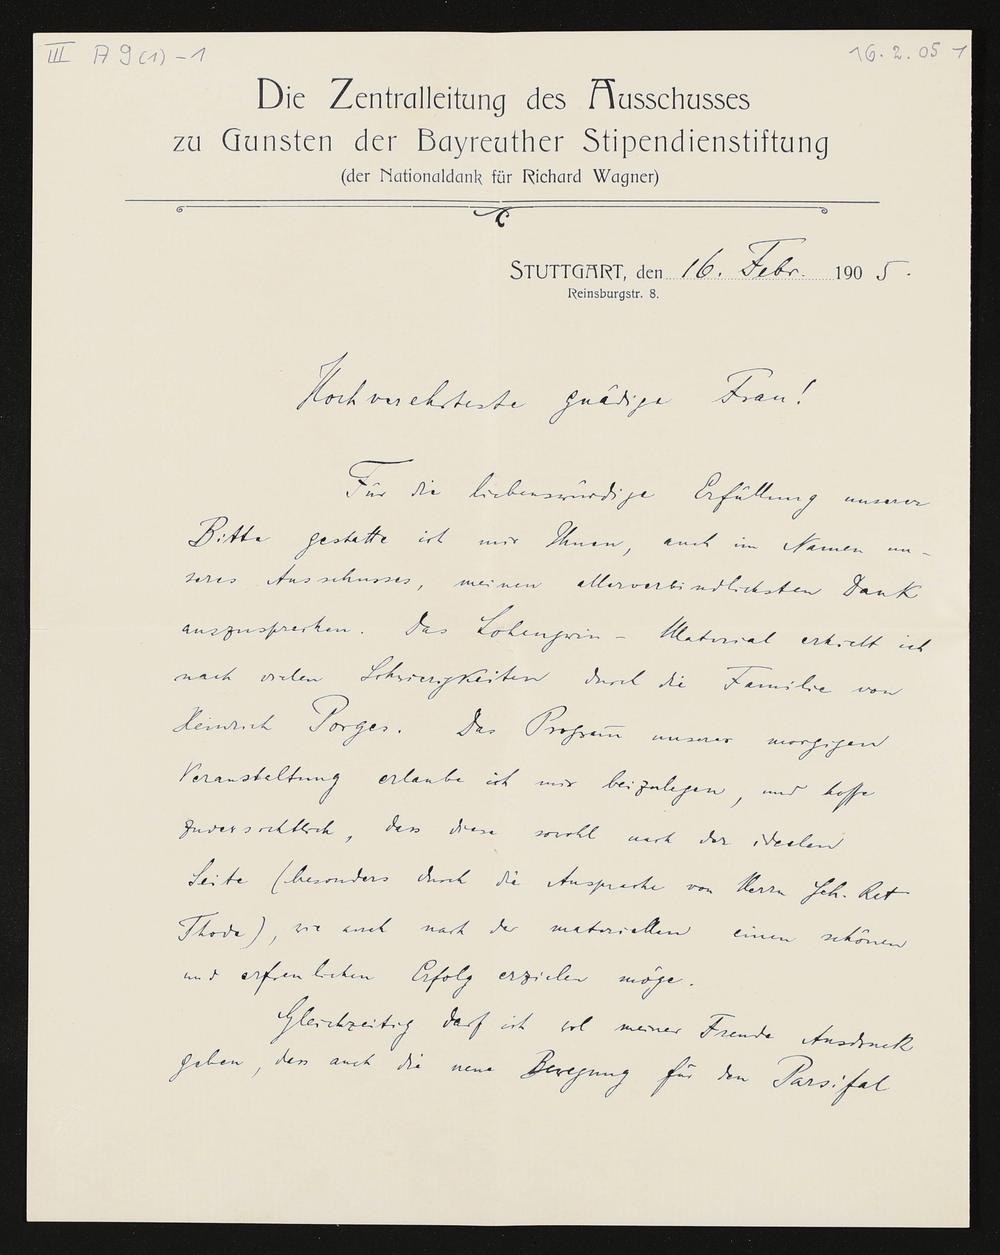 III A 9 (1) - 1
16. 2. 05 1
Die Zentralleitung des Ausschusses
zu Gunsten der Bayreuther Stipendienstiftung
(der Nationaldank für Richard Wagner)
STUTTGART, den 16. Febr. 1905.
Reinsburgstr. 8.
Hochverehrteste gnädige Frau!
Für die liebenswürdige Erfüllung unserer
Bitte gestatte ich mir Ihnen, auch im Namen un-
seres Ausschusses, meinen allerverbindlichsten Dank
auszusprechen. Das Lohengrin - Material erhielt ich
nach vielen Schwierigkeiten durch die Familie von
Heinrich Porges. Das Program̄ unserer morgigen
Veranstaltung erlaube ich mir beizulegen, und hoffe
zuversichtlich, dass diese sowohl nach der idealen
Seite (besonders durch die Ansprache von Herrn Geh. Rat
Thode), wie auch nach der materiellen einen schönen
und erfreulichen Erfolg erzielen möge.
Gleichzeitig darf ich wol meiner Freude Ausdruck
geben, dass auch die neue Bewegung für den Parsifal